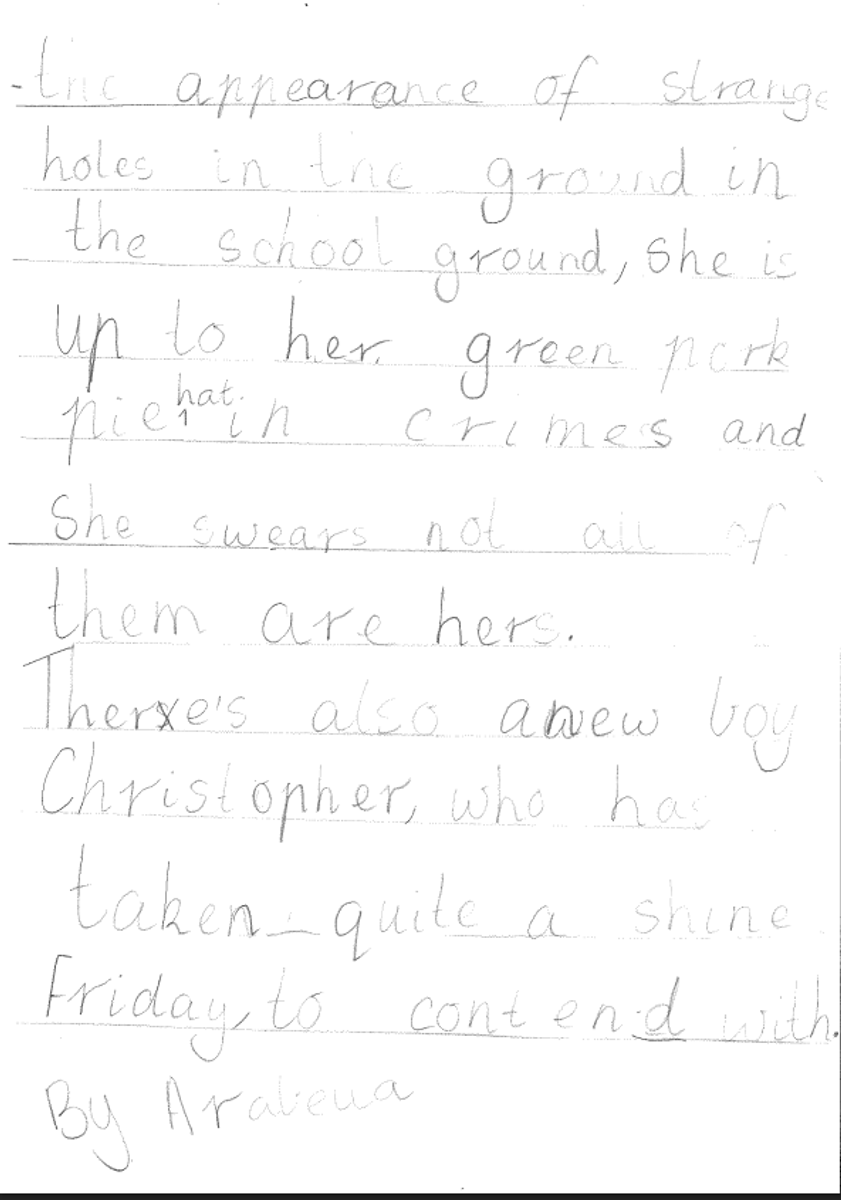 -the appearance of strange
holes in the ground in
the school ground, she is
up to her green pork
pie hat in crimes and
she swears not all of
them are hers.
There's also a new boy
Christopher, who has
taken quite a shine
Friday, to contend with.
By Arabella